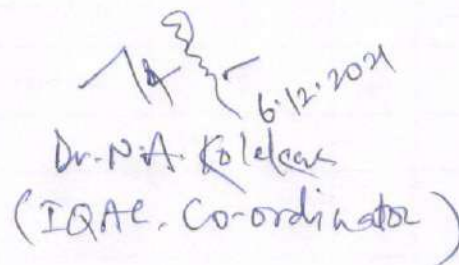 6.12.2021
Dr. N.A. Kolekar
(IQAC, Co-ordinator)